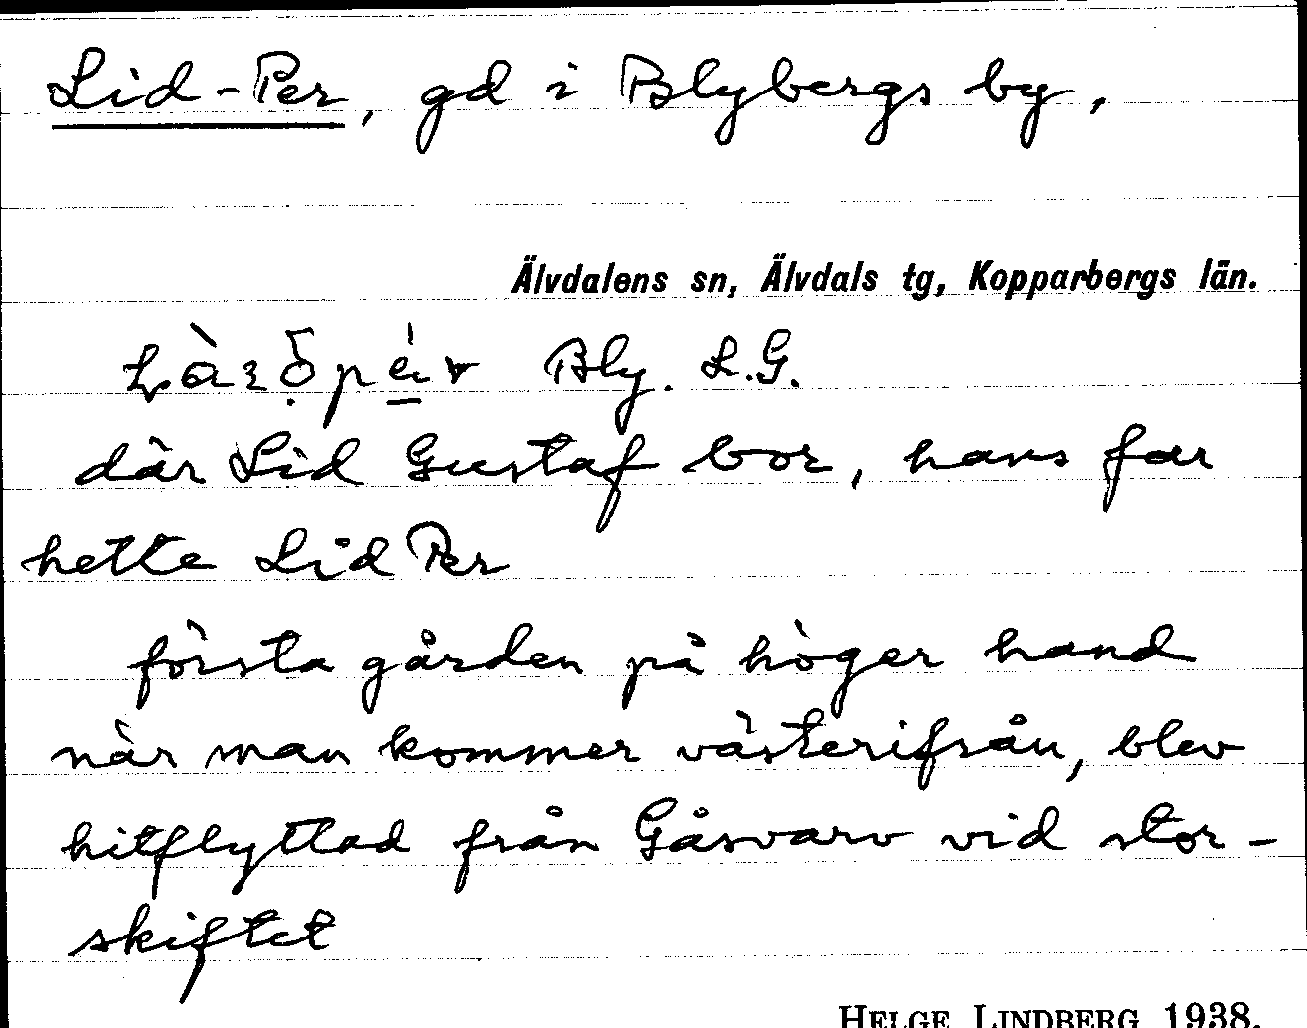 Lid-Per, gd i Blybergs by,
Älvdalens sn, Älvdals tg, Kopparbergs län.
Bly. L.G.
där Lid Gustaf bor, hans far
hette Lid Per
första gården på höger hand
när man kommer västerifrån, blev
hitflyttad från Gåsvarv vid stor-
skiftet
HELGE LINDBERG 1938.